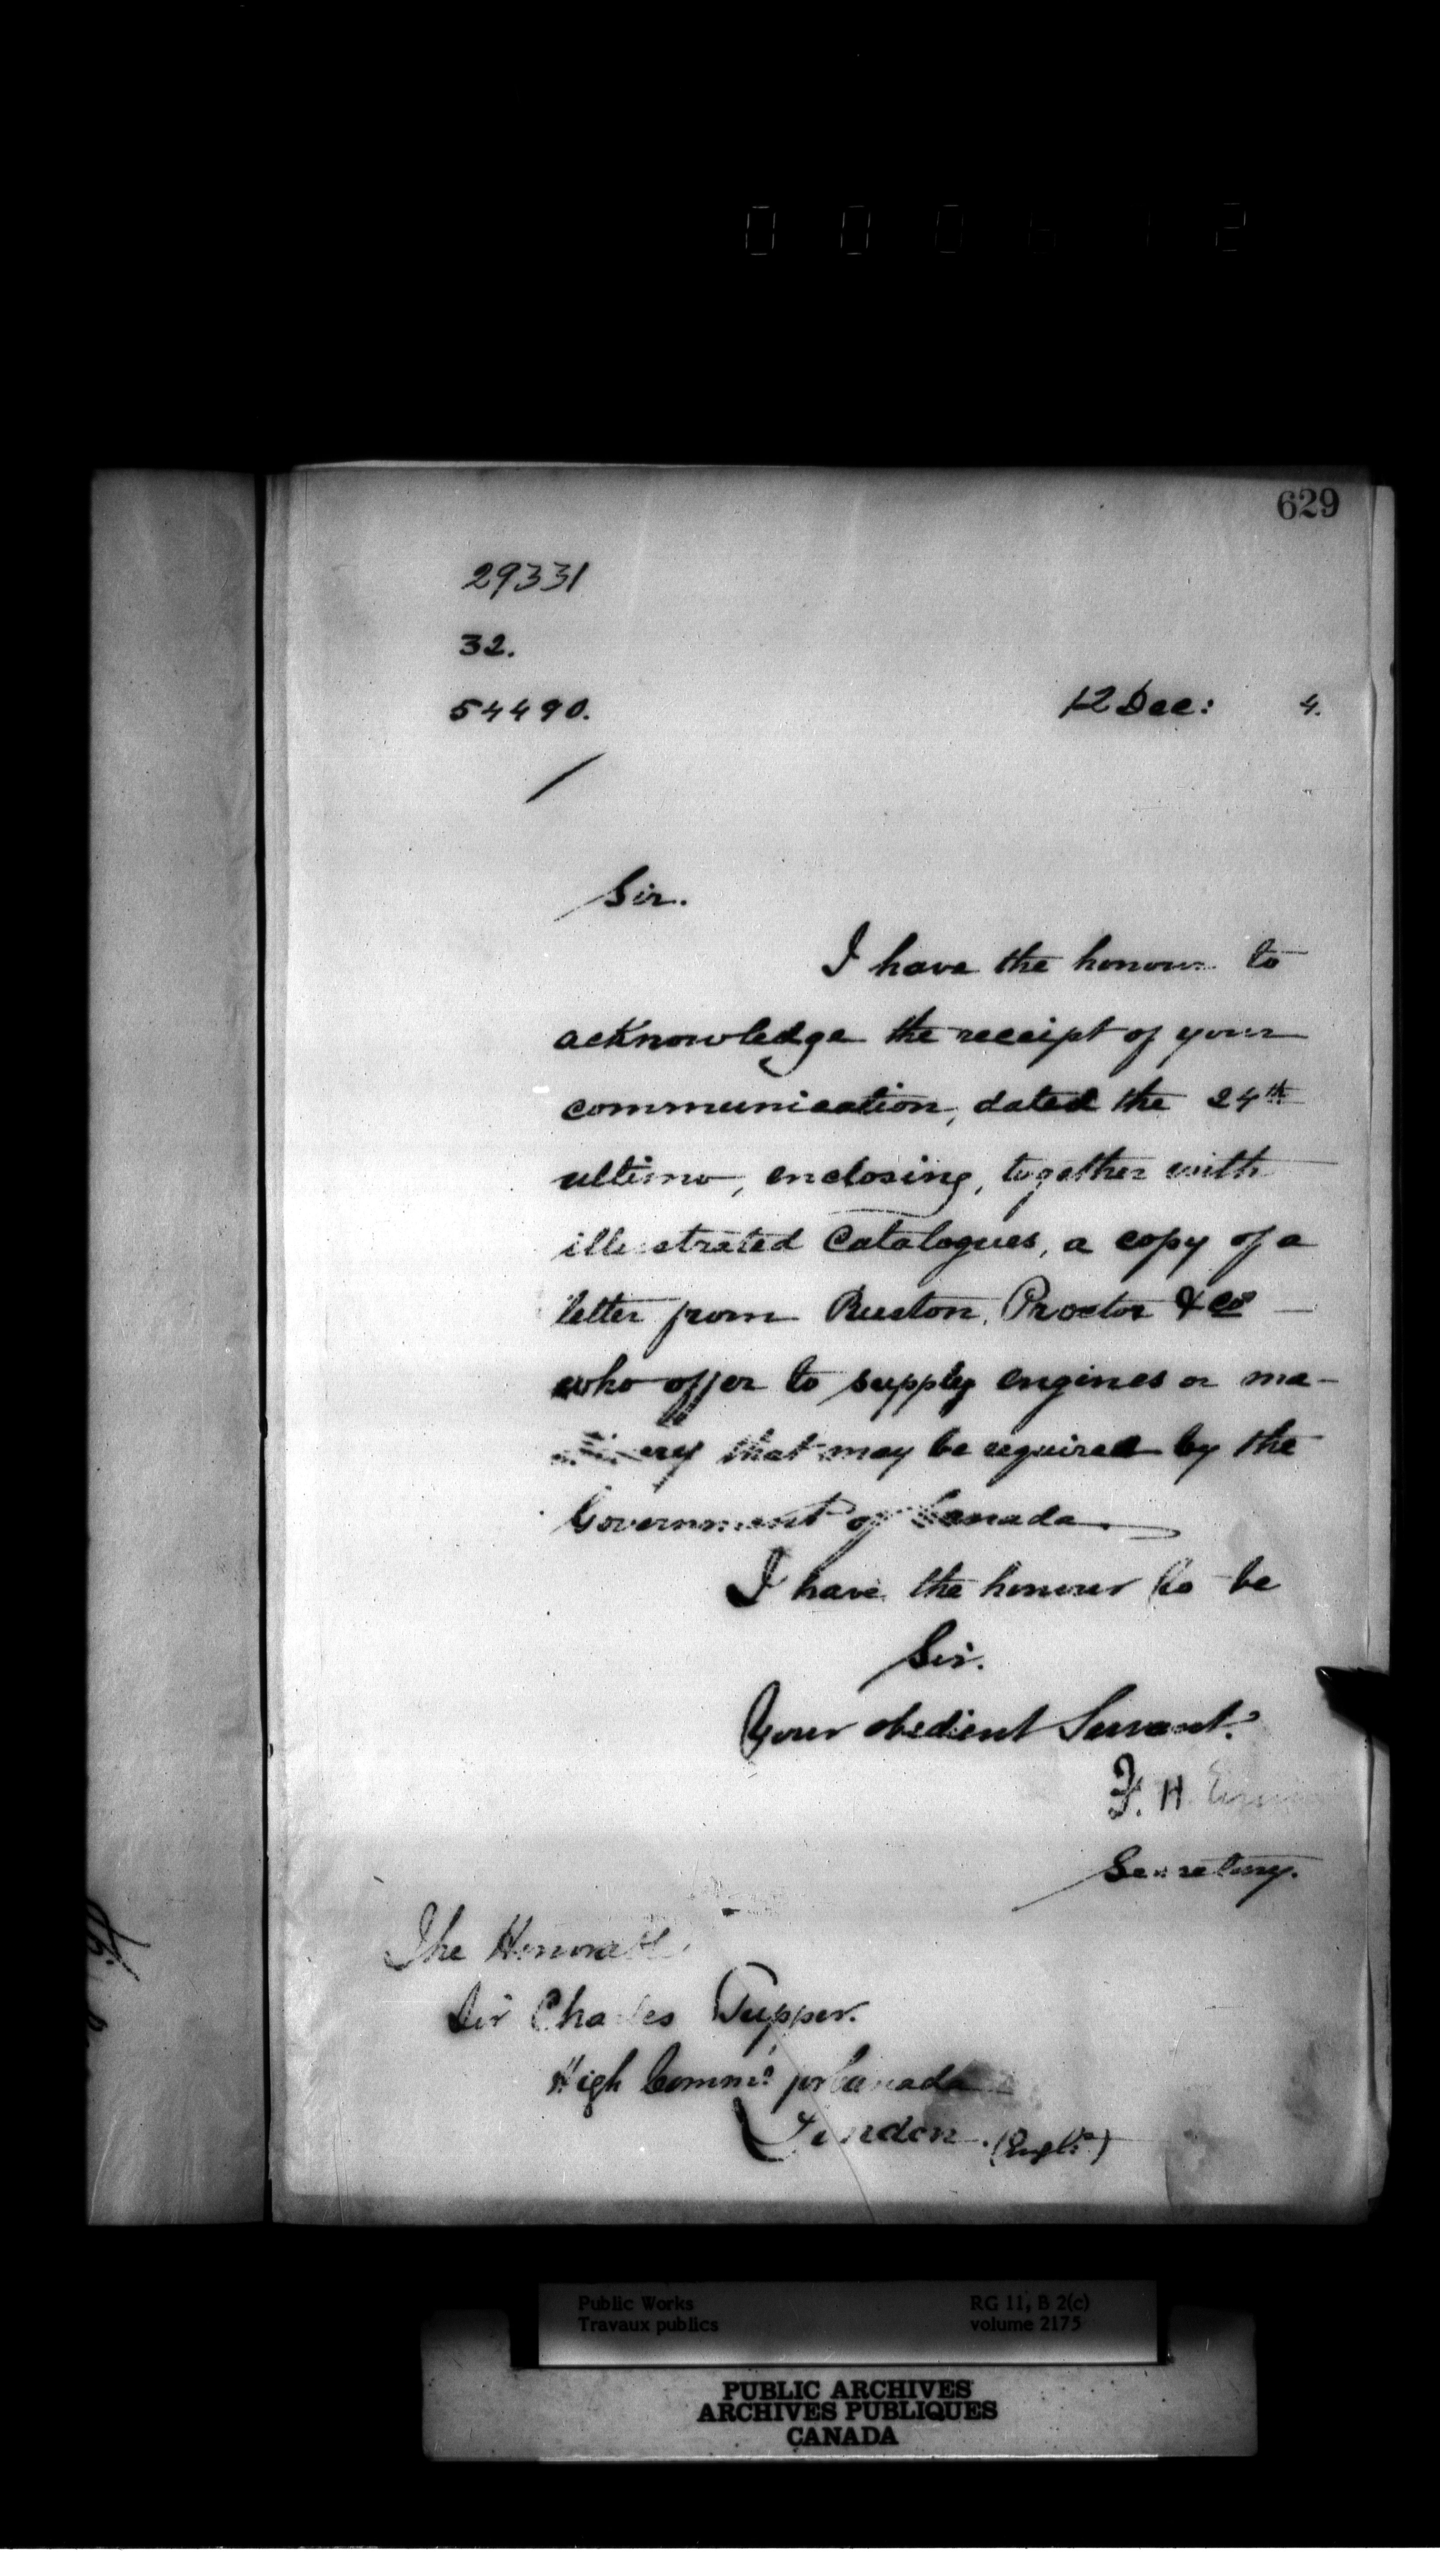 0 0 0 6 1 2
629
29331
32.
54490.
12 Dec: 4.
Sir.
I have the honour to
acknowledge the receipt of your
communication, dated the 24th
ultimo, enclosing, together with
illustrated Catalogues, a copy of a
letter from Ruston, Proctor & Co
who offer to supply engines or ma-
chinery that may be required by the
Government of Canada.
I have the honour to be
Sir.
Your obedient Servant.
F. H.
Secretary.
The Honorable
Sir Charles Tupper.
High Commr for Canada
London.
Public Works
Travaux publics
RG 11, B 2(c)
volume 2175
PUBLIC ARCHIVES
ARCHIVES PUBLIQUES
CANADA